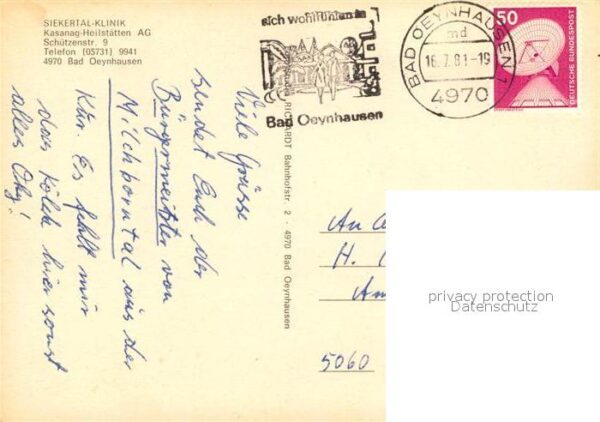 SIEKERTAL-KLINIK
Kasanag-Heilstätten AG
Schützenstr. 9
Telefon (05731) 9941
4970 Bad Oeynhausen
sich wohlfühlen in
Bad Oeynhausen
BAD OEYNHAUSEN 1
md
16.7.81-19
4970
50
DEUTSCHE BUNDESPOST
Viele Grüsse
sendet Euch der
Bürgermeister von
Milchborntal aus der
Kur. Es fehlt mir
das Kölch hier sonst
alles Oky!
RICHARDT Bahnhofstr. 2 - 4970 Bad Oeynhausen
An
H.
Am
5060
privacy protection
Datenschutz